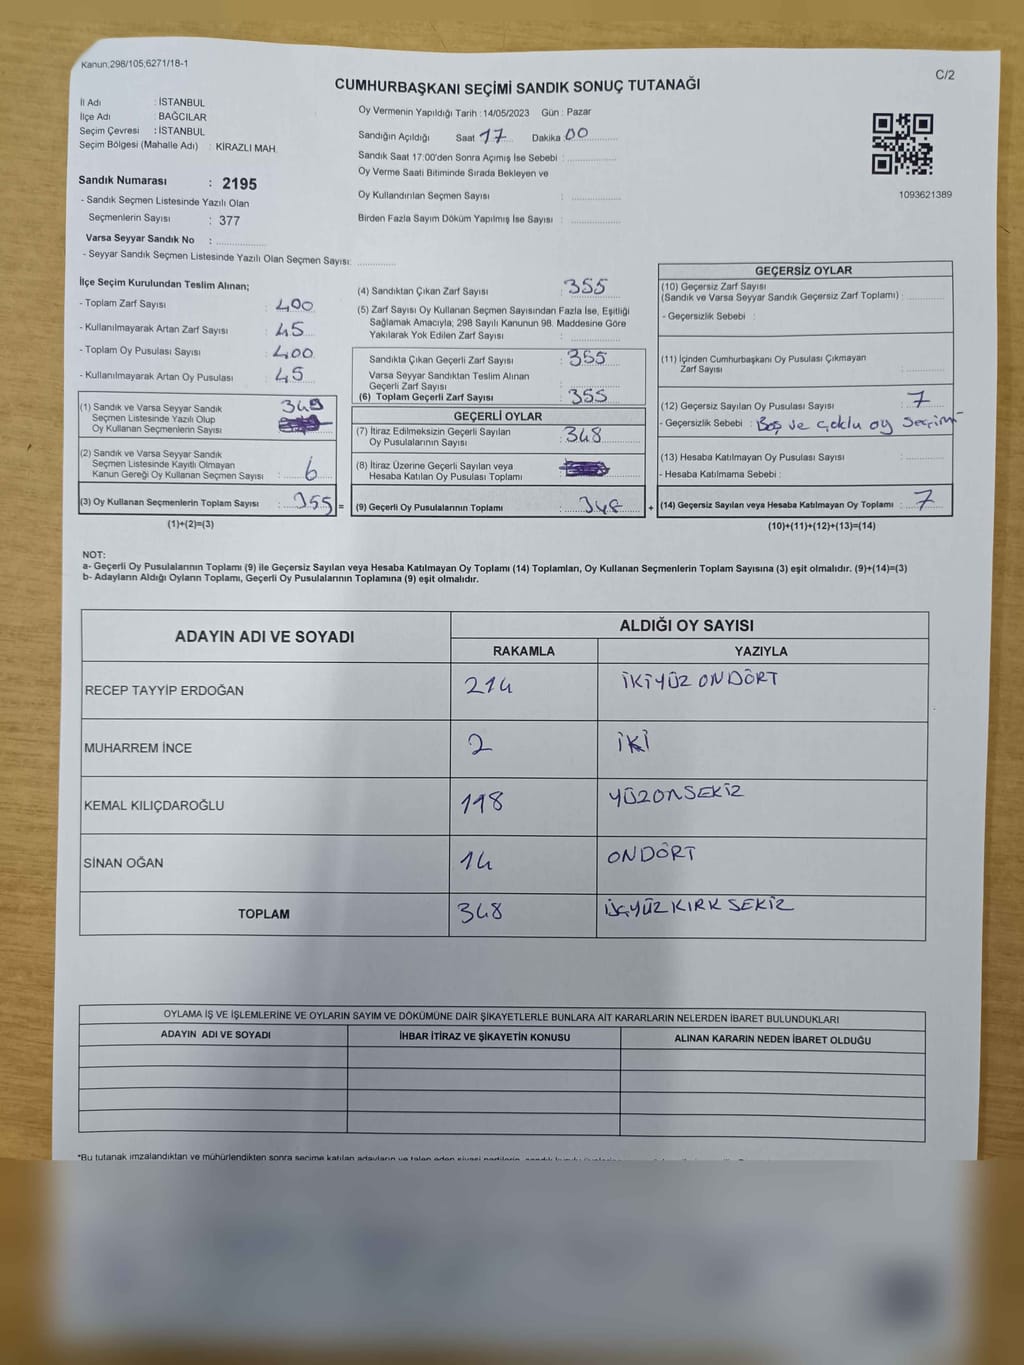 Kanun,298/105,6271/18-1
C/2
CUMHURBAŞKANI SEÇİMİ SANDIK SONUÇ TUTANAĞI
İl Adı : İSTANBUL
İlçe Adı : BAĞCILAR
Seçim Çevresi : İSTANBUL
Seçim Bölgesi (Mahalle Adı) : KİRAZLI MAH.
Sandık Numarası : 2195
- Sandık Seçmen Listesinde Yazılı Olan
Seçmenlerin Sayısı : 377
Varsa Seyyar Sandık No :
- Seyyar Sandık Seçmen Listesinde Yazılı Olan Seçmen Sayısı:
Oy Vermenin Yapıldığı Tarih : 14/05/2023 Gün : Pazar
Sandığın Açıldığı Saat 17 Dakika 00
Sandık Saat 17:00'den Sonra Açımış İse Sebebi :
Oy Verme Saati Bitiminde Sırada Bekleyen ve
Oy Kullandırılan Seçmen Sayısı :
Birden Fazla Sayım Döküm Yapılmış İse Sayısı :
1093621389
İlçe Seçim Kurulundan Teslim Alınan;
- Toplam Zarf Sayısı : 400
- Kullanılmayarak Artan Zarf Sayısı : 45
- Toplam Oy Pusulası Sayısı : 400
- Kullanılmayarak Artan Oy Pusulası : 45
(1) Sandık ve Varsa Seyyar Sandık 349
Seçmen Listesinde Yazılı Olup
Oy Kullanan Seçmenlerin Sayısı
(2) Sandık ve Varsa Seyyar Sandık
Seçmen Listesinde Kayıtlı Olmayan
Kanun Gereği Oy Kullanan Seçmen Sayısı : 6
(3) Oy Kullanan Seçmenlerin Toplam Sayısı : 355 =
(1)+(2)=(3)
(4) Sandıktan Çıkan Zarf Sayısı : 355
(5) Zarf Sayısı Oy Kullanan Seçmen Sayısından Fazla İse, Eşitliği
Sağlamak Amacıyla; 298 Sayılı Kanunun 98. Maddesine Göre
Yakılarak Yok Edilen Zarf Sayısı :
Sandıkta Çıkan Geçerli Zarf Sayısı : 355
Varsa Seyyar Sandıktan Teslim Alınan
Geçerli Zarf Sayısı :
(6) Toplam Geçerli Zarf Sayısı : 355
GEÇERLİ OYLAR
(7) İtiraz Edilmeksizin Geçerli Sayılan
Oy Pusulalarının Sayısı : 348
(8) İtiraz Üzerine Geçerli Sayılan veya
Hesaba Katılan Oy Pusulası Toplamı :
(9) Geçerli Oy Pusulalarının Toplamı : 348 +
GEÇERSİZ OYLAR
(10) Geçersiz Zarf Sayısı
(Sandık ve Varsa Seyyar Sandık Geçersiz Zarf Toplamı) :
- Geçersizlik Sebebi :
(11) İçinden Cumhurbaşkanı Oy Pusulası Çıkmayan
Zarf Sayısı :
(12) Geçersiz Sayılan Oy Pusulası Sayısı : 7
- Geçersizlik Sebebi : Boş ve çoklu oy seçimi
(13) Hesaba Katılmayan Oy Pusulası Sayısı :
- Hesaba Katılmama Sebebi :
(14) Geçersiz Sayılan veya Hesaba Katılmayan Oy Toplamı : 7
(10)+(11)+(12)+(13)=(14)
NOT:
a- Geçerli Oy Pusulalarının Toplamı (9) ile Geçersiz Sayılan veya Hesaba Katılmayan Oy Toplamı (14) Toplamları, Oy Kullanan Seçmenlerin Toplam Sayısına (3) eşit olmalıdır. (9)+(14)=(3)
b- Adayların Aldığı Oyların Toplamı, Geçerli Oy Pusulalarının Toplamına (9) eşit olmalıdır.
ADAYIN ADI VE SOYADI
ALDIĞI OY SAYISI
RAKAMLA YAZIYLA
RECEP TAYYİP ERDOĞAN 214 İKİYÜZ ONDÖRT
MUHARREM İNCE 2 İKİ
KEMAL KILIÇDAROĞLU 118 YÜZONSEKİZ
SİNAN OĞAN 14 ONDÖRT
TOPLAM 348 ÜÇYÜZ KIRK SEKİZ
OYLAMA İŞ VE İŞLEMLERİNE VE OYLARIN SAYIM VE DÖKÜMÜNE DAİR ŞİKAYETLERLE BUNLARA AİT KARARLARIN NELERDEN İBARET BULUNDUKLARI
ADAYIN ADI VE SOYADI İHBAR İTİRAZ VE ŞİKAYETİN KONUSU ALINAN KARARIN NEDEN İBARET OLDUĞU
*Bu tutanak imzalandıktan ve mühürlendikten sonra seçime katılan adayların ve talep eden siyasi partilerin,